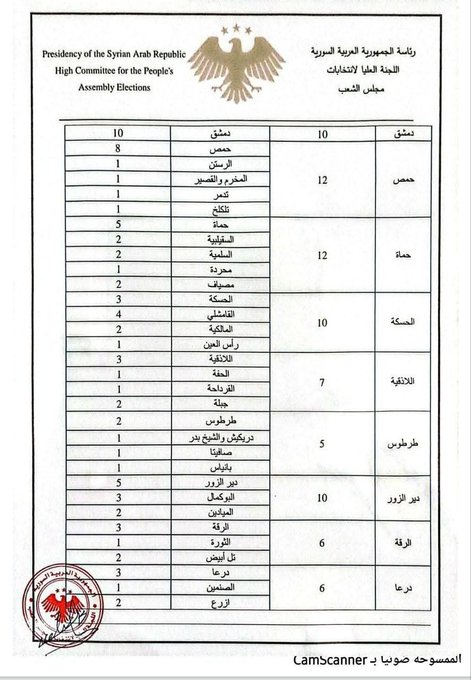 Presidency of the Syrian Arab Republic
High Committee for the People's
Assembly Elections
رئاسة الجمهورية العربية السورية
اللجنة العليا لانتخابات
مجلس الشعب
دمشق 10 دمشق 10
حمص 12 حمص 8
الرستن 1
المخرم والقصير 1
تدمر 1
تلكلخ 1
حماة 12 حماة 5
السقيلبية 2
السلمية 2
محردة 1
مصياف 2
الحسكة 10 الحسكة 3
القامشلي 4
المالكية 2
رأس العين 1
اللاذقية 7 اللاذقية 3
الحفة 1
القرداحة 1
جبلة 2
طرطوس 5 طرطوس 2
دريكيش والشيخ بدر 1
صافيتا 1
بانياس 1
دير الزور 10 دير الزور 5
البوكمال 3
الميادين 2
الرقة 6 الرقة 3
الثورة 1
تل أبيض 2
درعا 6 درعا 3
الصنمين 1
ازرع 2
الجمهورية العربية السورية
الممسوحه ضوئيا بـ CamScanner